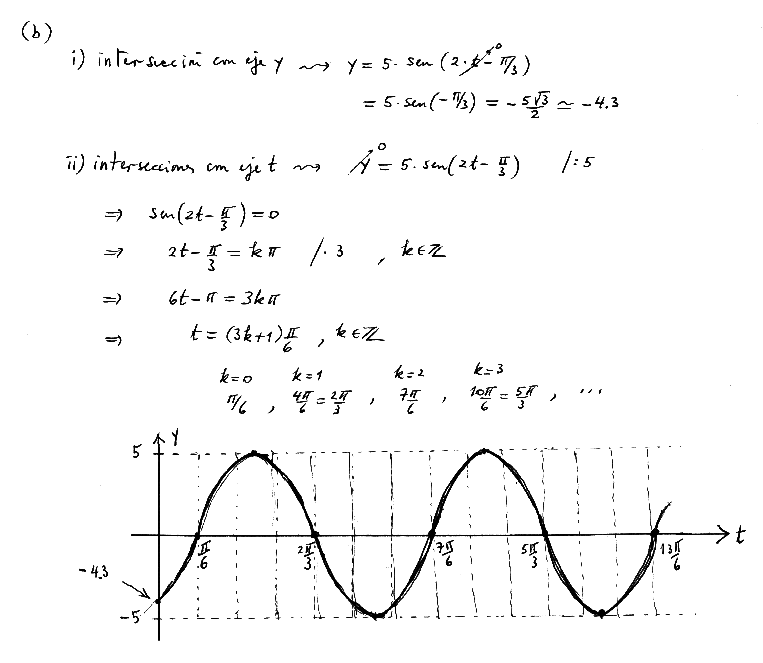 (b)
i) intersección con eje y ⇝ y = 5· sen (2·t⁰ - π/3)
= 5·sen(-π/3) = - 5√3/2 ≃ -4.3
ii) intersecciones con eje t ⇝ y⁰ = 5·sen(2t - π/3) /:5
⇒ sen(2t - π/3) = 0
⇒ 2t - π/3 = kπ /·3 , k∈ℤ
⇒ 6t - π = 3kπ
⇒ t = (3k+1)π/6 , k∈ℤ
k=0 k=1 k=2 k=3
π/6 , 4π/6 = 2π/3 , 7π/6 , 10π/6 = 5π/3 , ...
5 y
π/6 2π/3 7π/6 5π/3 13π/6 t
-4.3
-5